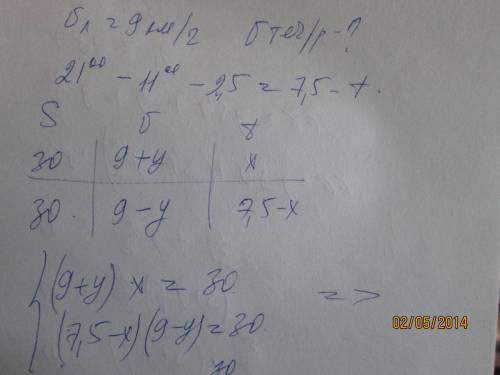 υл = 9 км/г υ теч/р - ?
21⁰⁰ - 11⁰⁰ - 2,5 = 7,5 - t.
S υ t
30 | 9+y | x
30. | 9-y | 7,5-x
{ (9+y) x = 30
(7,5-x)(9-y)=30. =>
30
02/05/2014